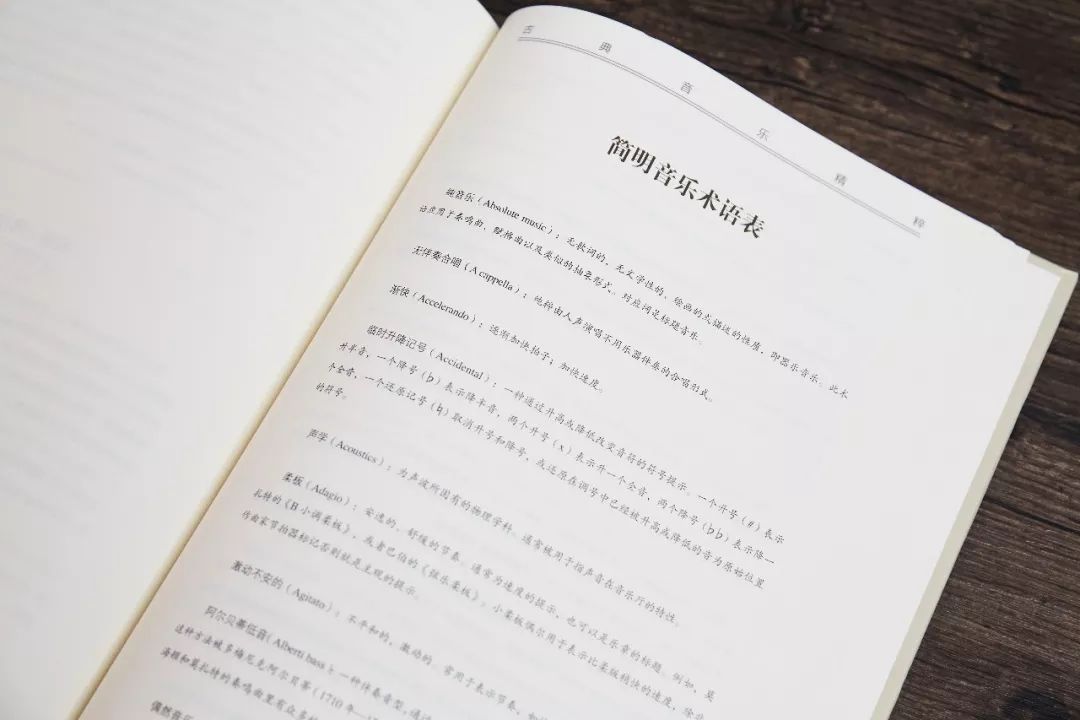 古典音乐精粹
简明音乐术语表
纯音乐（Absolute music）：无歌词的、无文学性的、绘画的或描述的性质，即器乐音乐。此术
语应用于奏鸣曲、赋格曲以及类似的抽象形式。对应词是标题音乐。
无伴奏合唱（A cappella）：纯粹由人声演唱不用乐器伴奏的合唱形式。
渐快（Accelerando）：逐渐加快拍子；加快速度。
临时升降记号（Accidental）：一种通过升高或降低改变音符的符号提示。一个升号（#）表示
升半音，一个降号（b）表示降半音，两个升号（x）表示升一个全音，两个降号（bb）表示降一
个全音，一个还原记号（♮）取消升号和降号，或还原在调号中已经被升高或降低的音为原始位置
的符号。
声学（Acoustics）：为声波所固有的物理学科。通常被用于指声音在音乐厅的特性。
柔板（Adagio）：安逸的、舒缓的节奏。通常为速度的提示，也可以是乐章的标题。例如，莫
扎特的《B小调柔板》，或者巴伯的《弦乐柔板》。小柔板偶尔用于表示比柔板稍快的速度，除非
作曲家节拍器标记否则就是主观的提示。
激动不安的（Agitato）：不平和的，激动的。常用于表示节奏，
阿尔贝蒂低音（Alberti bass）一种伴奏音型，通过
这种方法被多梅尼克·阿尔贝蒂（1710年—
海顿和莫扎特的奏鸣曲里有众多
偶然音乐